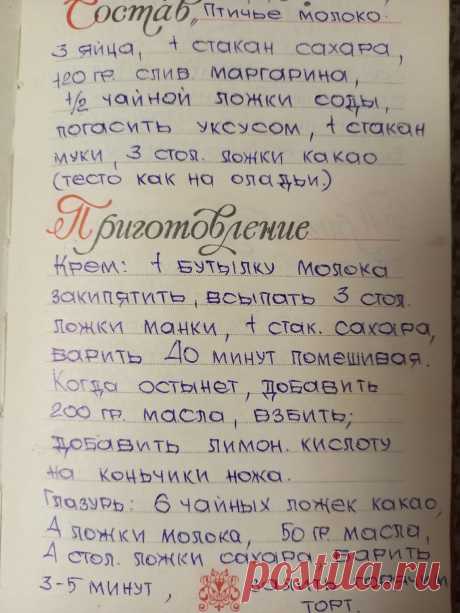 Состав Птичье молоко.
3 яйца, 1 стакан сахара,
120 гр. слив. маргарина,
1/2 чайной ложки соды,
погасить уксусом, 1 стакан
муки, 3 стол. ложки какао
(тесто как на оладьи.)
Приготовление
Крем: 1 бутылку молока
закипятить, всыпать 3 стол.
ложки манки, 1 стак. сахара,
варить 40 минут помешивая.
Когда остынет, добавить
200 гр. масла, взбить;
добавить лимон. кислоту
на коньчики ножа.
Глазурь: 6 чайных ложек какао,
4 ложки молока, 50 гр. масла,
4 стол. ложки сахара, варить
3-5 минут,
торт.
postila.ru